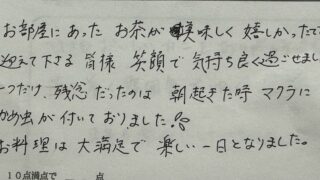 お部屋にあった お茶が 美味しく 嬉しかったで
迎えて下さる 皆様 笑顔で 気持ち良く過ごせまし
一つだけ、残念だったのは 朝起きた時 マクラに
かめ虫が付いておりました。
お料理は 大満足で 楽しい一日となりました。
10点満点で 点